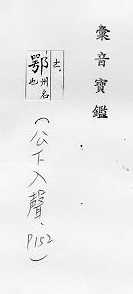 彙音寶鑑
去.
鄂州名也
(公下入聲、P152)